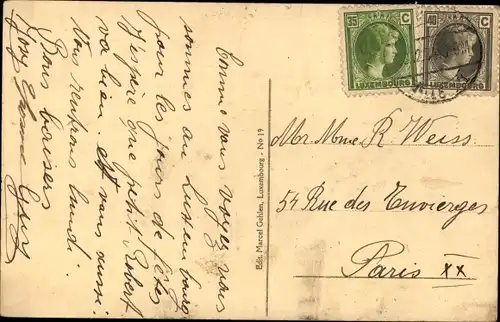 Comme vous voyez nous
sommes au Luxembourg
pour les jours de fêtes
J'espère que petit Robert
va bien. Et vous aussi.
Nous rentrons lundi.
Bons baisers
Edit. Marcel Gehlen, Luxembourg - No 19
35 C
LUXEMBOURG
40 C
LUXEMBOURG
Mr Mme R Weiss
54 Rue des Envierges
Paris XX